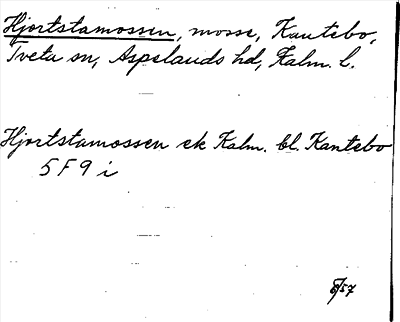 Hjortstamossen, mosse, Kantebo,
Tveta sn, Aspelands hd, Kalm. l.
Hjortstamossen ek Kalm. bl. Kantebo
5F9 i
/57